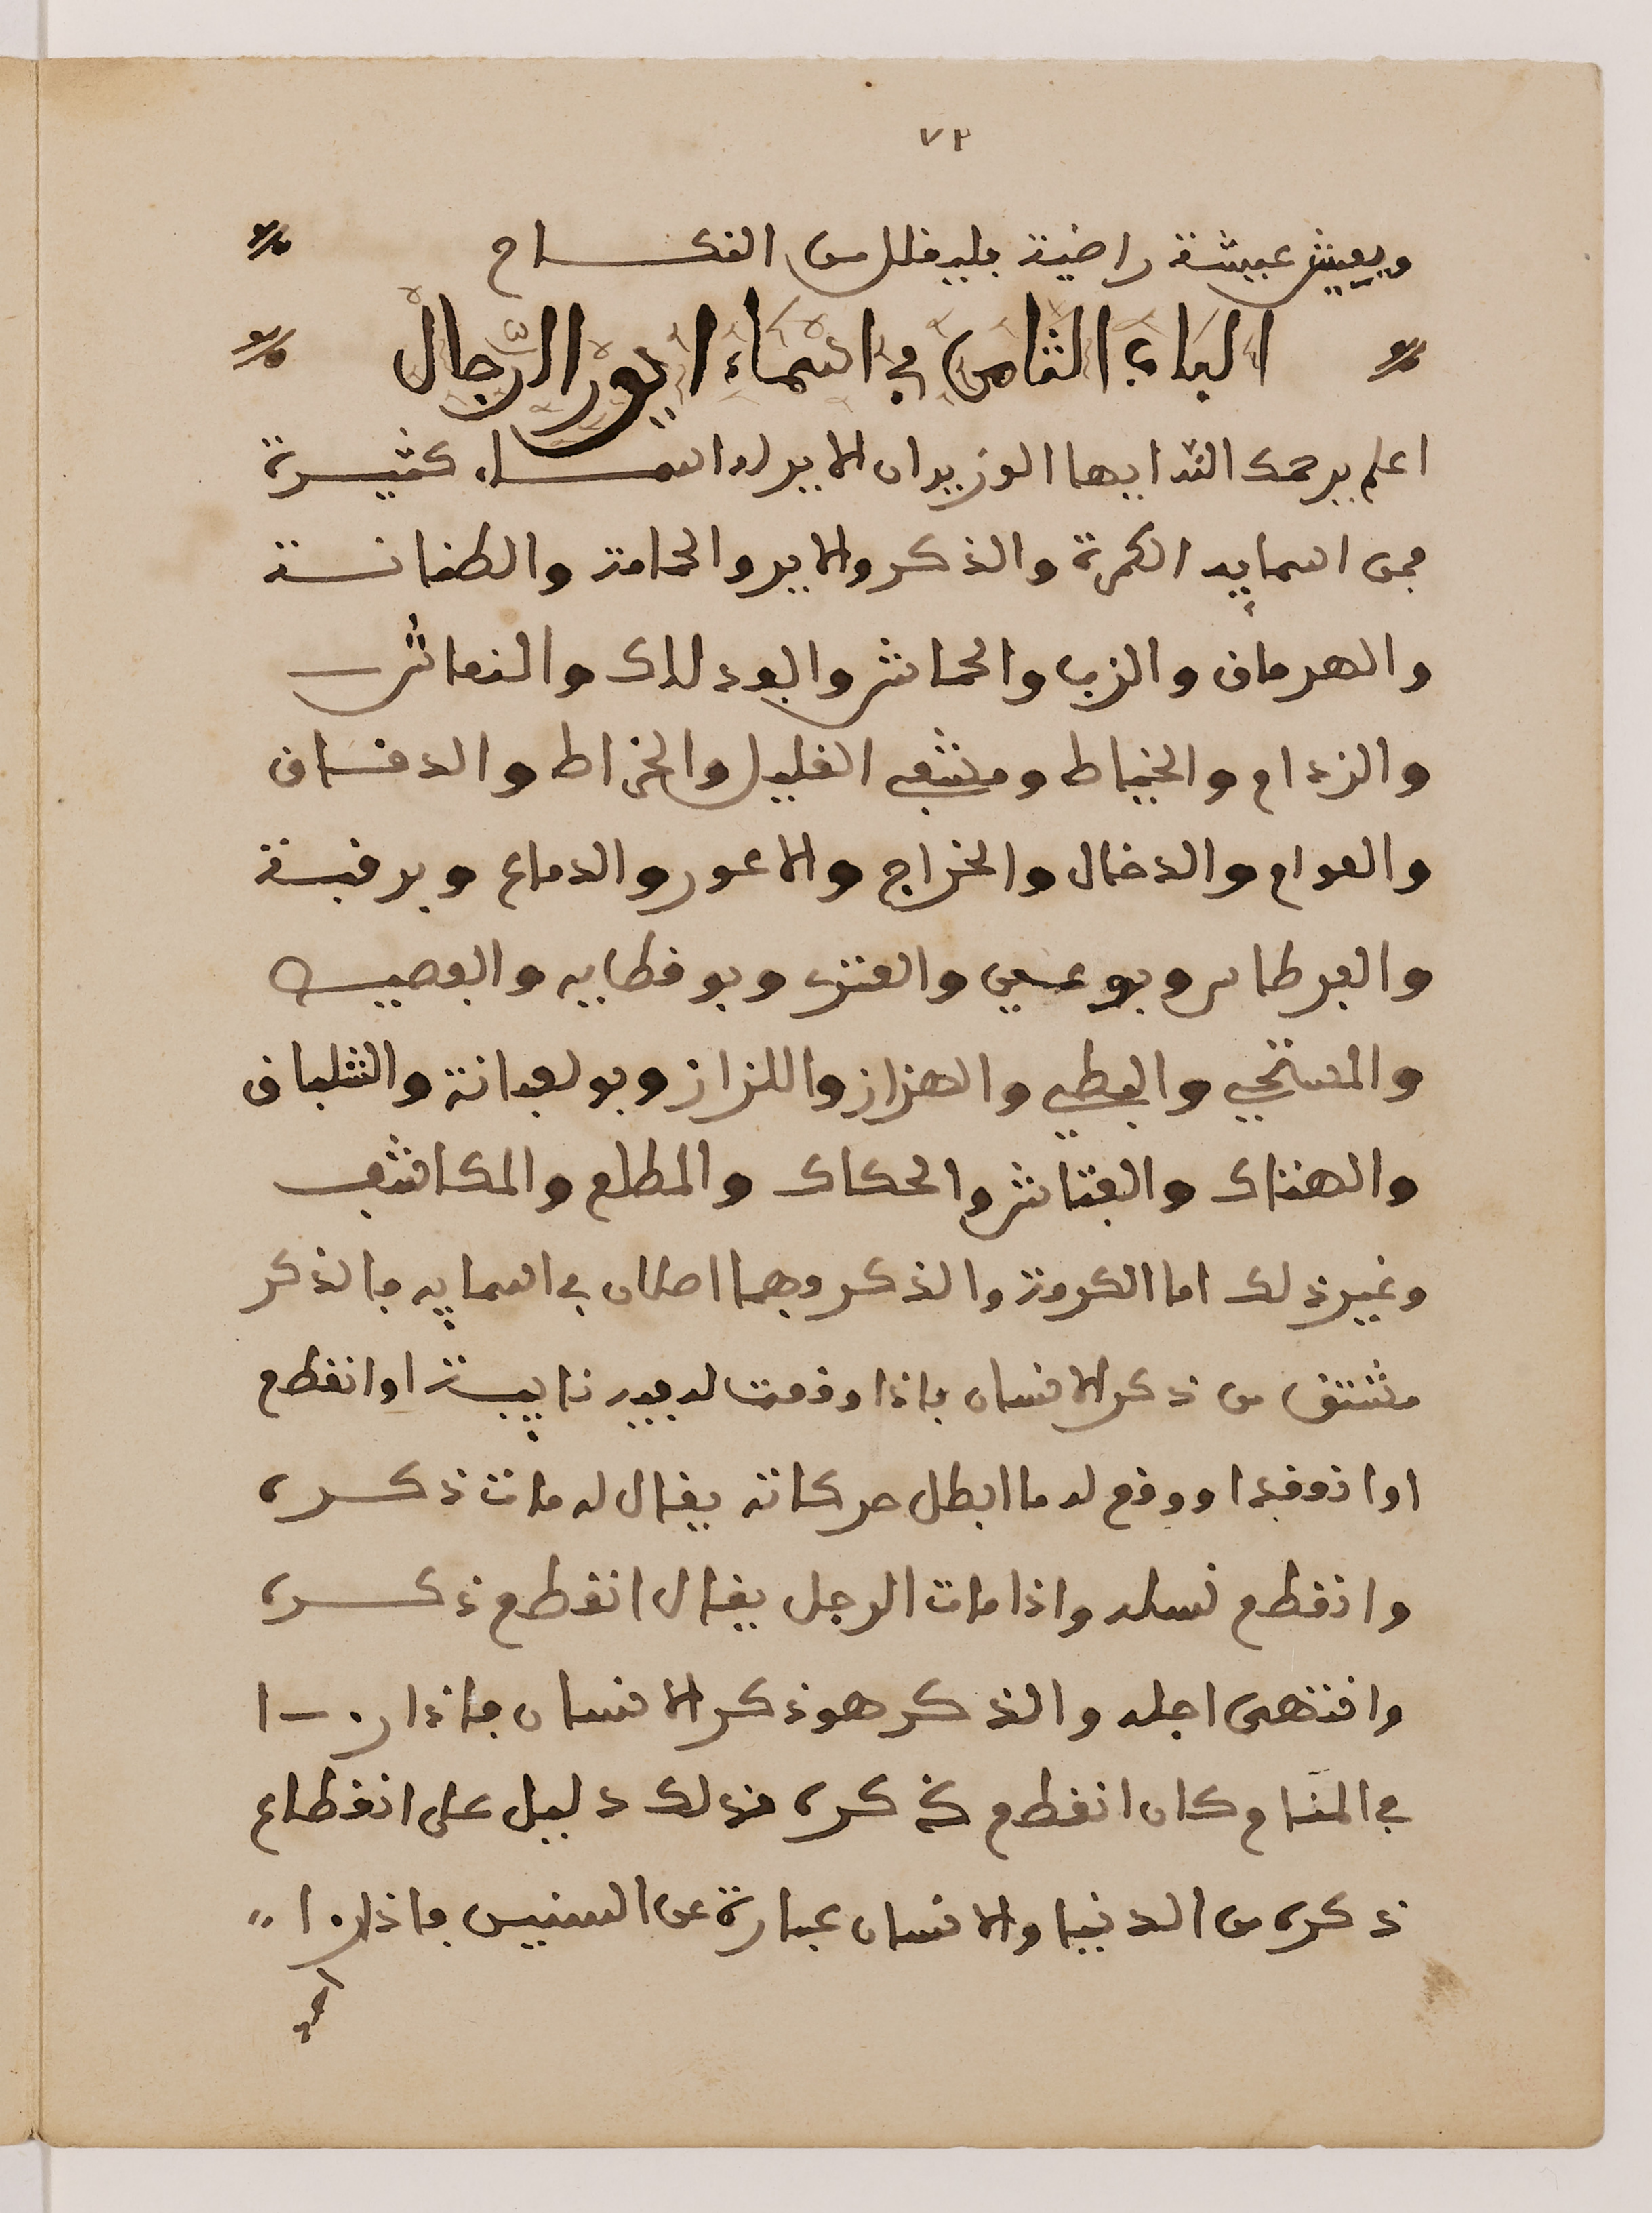 ٧٢
ويعيش عيشة راضية فليقلل من النكاح
الباب الثامن في اسماء ايور الرجال
اعلم يرحمك الله ايها الوزير ان الاير له اسماء كثيرة
فمن اسمايه الكمرة والذكر والاير والحمامة والطنانة
والهرماق والزب والحماش والبدلاك والنعاش
والزدام والخياط ومشفي الغليل والخراط والدقاق
والعوام والدخال والخراج والاعور والدماع وبو رقبة
والفرطاس وبو عين والعنزي وبو قطاية والفصيص
والمستحي والبكاي والهزاز واللزاز وبو لعابة والشلباق
والهتاك والفتاش والحكاك والمطلع والمكاشف
وغير ذلك اما الكمرة والذكر وهما اصلان في اسمايه فالذكر
مشتق من ذكر الانسان فاذا وقعت له فيه نايبة او انقطع
او انوفدا ووقع له ما ابطل حركاته يقال له مات ذكره
وانقطع نسله واذا مات الرجل يقال انقطع ذكره
وانتهى اجله والذكر هو ذكر الانسان فاذا را
في المنام كان انقطع ذكره فذلك دليل على انقطاع
ذكره من الدنيا والانسان عبارة عن السنين فاذا را